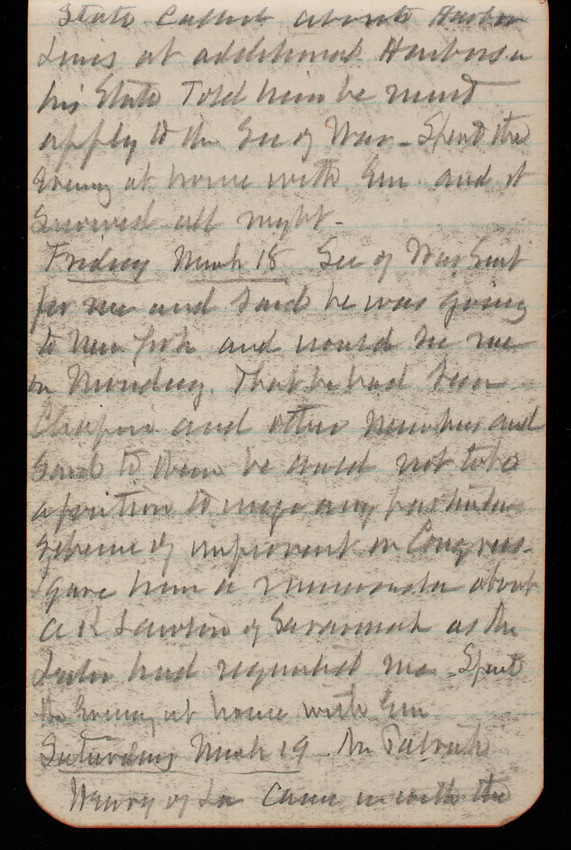 State called about Harbor
Lines at additional Harbors in
his State Told him he must
apply to the Sec of War - Spent the
Evening at home with Em and it
Snowed all night -
Friday March 18 Sec of War Sent
for me and Said he was going
to New York and would see me
on Monday. That he had seen
Chapin and other Members and
Said to them he could not take
a position to urge any particular
Scheme of improvement on Congress -
I gave him a memoranda about
A R Lawton of Savannah as the
had requested me - Spent
the Evening at home with Em
Saturday March 19 Mr Patrick
Henry of La came in with the